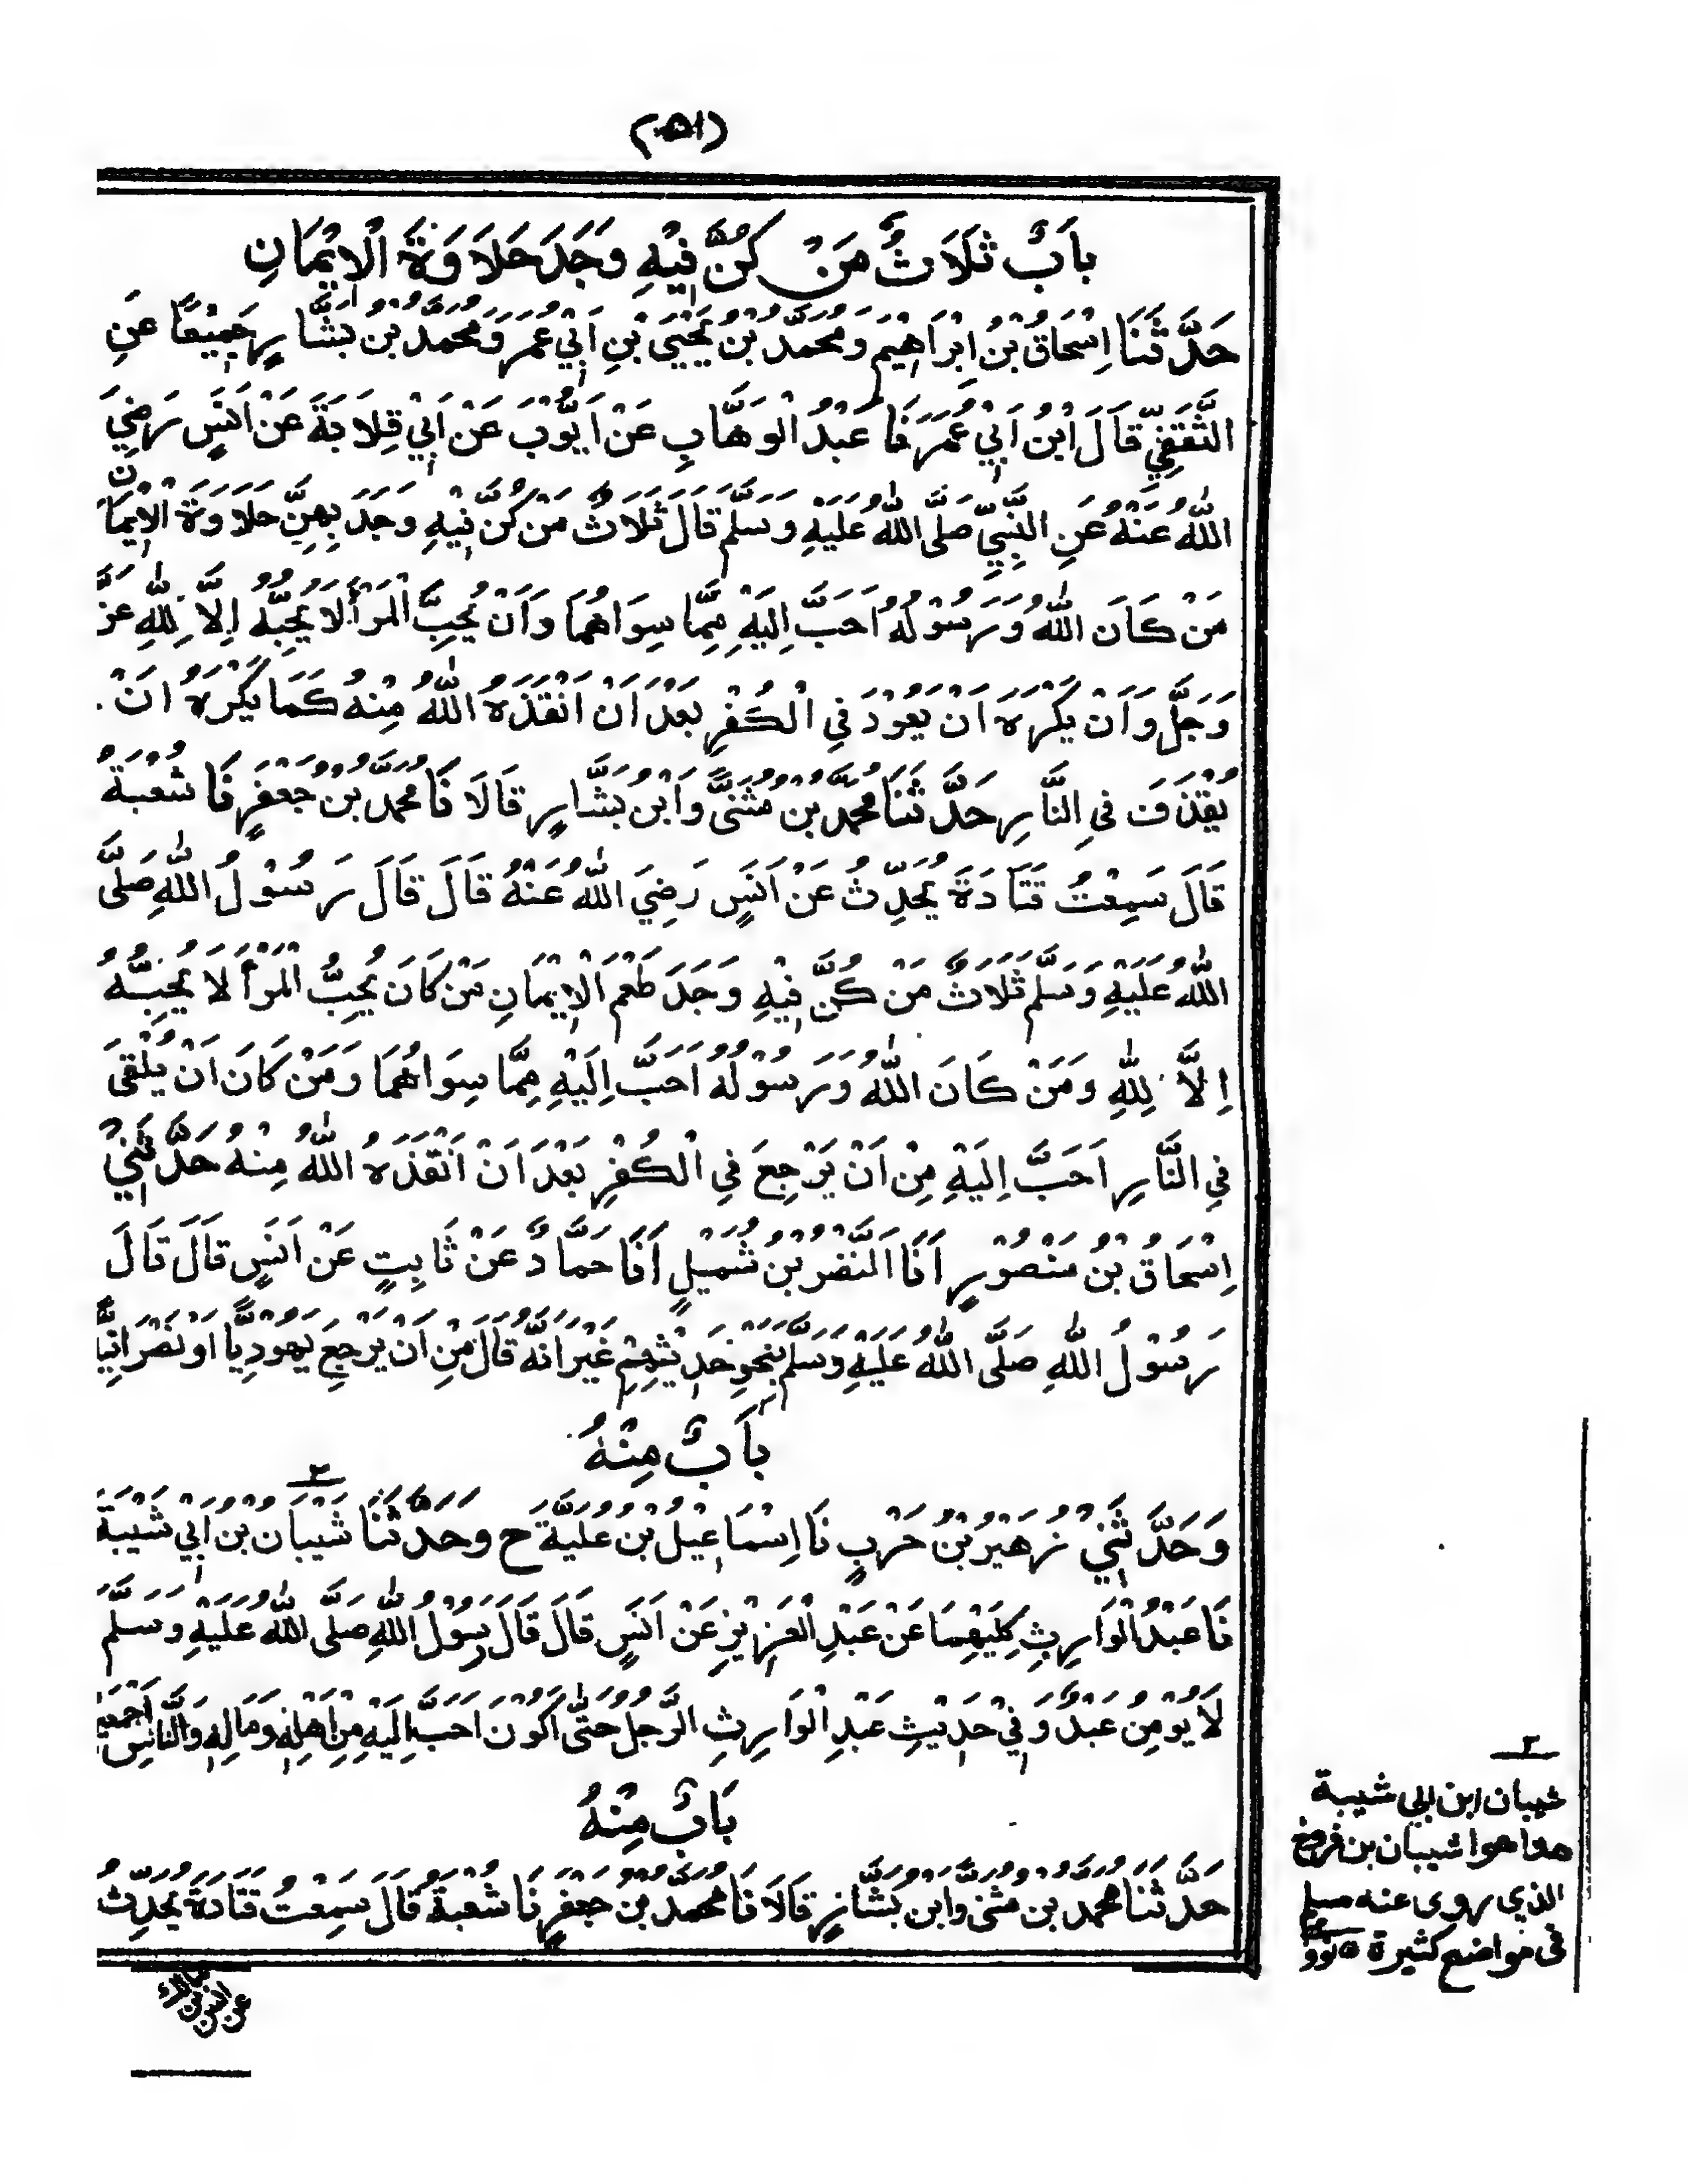 (٥١)
بَابٌ ثَلَاثٌ مَنْ كُنَّ فِيْهِ وَجَدَ حَلَاوَةَ الْاِيْمَانِ
حَدَّثَنَا اِسْحَاقُ بْنُ اِبْرَاهِيْمَ وَمُحَمَّدُ بْنُ يَحْيَى بْنِ اَبِيْ عُمَرَ وَمُحَمَّدُ بْنُ بَشَّارٍ جَمِيْعًا عَنِ
الثَّقَفِيِّ قَالَ ابْنُ اَبِيْ عُمَرَ نَا عَبْدُ الْوَهَّابِ عَنْ اَيُّوْبَ عَنْ اَبِيْ قِلَابَةَ عَنْ اَنَسٍ رَضِيَ
اللّٰهُ عَنْهُ عَنِ النَّبِيِّ صَلَّى اللّٰهُ عَلَيْهِ وَسَلَّمَ قَالَ ثَلَاثٌ مَنْ كُنَّ فِيْهِ وَجَدَ بِهِنَّ حَلَاوَةَ الْاِيْمَانِ
مَنْ كَانَ اللّٰهُ وَرَسُوْلُهُ اَحَبَّ اِلَيْهِ مِمَّا سِوَاهُمَا وَاَنْ يُحِبَّ الْمَرْأَ لَا يُحِبُّهُ اِلَّا لِلّٰهِ عَزَّ
وَجَلَّ وَاَنْ يَكْرَهَ اَنْ يَعُوْدَ فِي الْكُفْرِ بَعْدَ اَنْ اَنْقَذَهُ اللّٰهُ مِنْهُ كَمَا يَكْرَهُ اَنْ
يُقْذَفَ فِي النَّارِ حَدَّثَنَا مُحَمَّدُ بْنُ مُثَنًّى وَابْنُ بَشَّارٍ قَالَا نَا مُحَمَّدُ بْنُ جَعْفَرٍ نَا شُعْبَةُ
قَالَ سَمِعْتُ قَتَادَةَ يُحَدِّثُ عَنْ اَنَسٍ رَضِيَ اللّٰهُ عَنْهُ قَالَ قَالَ رَسُوْلُ اللّٰهِ صَلَّى
اللّٰهُ عَلَيْهِ وَسَلَّمَ ثَلَاثٌ مَنْ كُنَّ فِيْهِ وَجَدَ طَعْمَ الْاِيْمَانِ مَنْ كَانَ يُحِبُّ الْمَرْأَ لَا يُحِبُّهُ
اِلَّا لِلّٰهِ وَمَنْ كَانَ اللّٰهُ وَرَسُوْلُهُ اَحَبَّ اِلَيْهِ مِمَّا سِوَاهُمَا وَمَنْ كَانَ اَنْ يُلْقٰى
فِي النَّارِ اَحَبَّ اِلَيْهِ مِنْ اَنْ يَرْجِعَ فِي الْكُفْرِ بَعْدَ اَنْ اَنْقَذَهُ اللّٰهُ مِنْهُ حَدَّثَنِيْ
اِسْحَاقُ بْنُ مَنْصُوْرٍ اَنَا النَّضْرُ بْنُ شُمَيْلٍ اَنَا حَمَّادٌ عَنْ ثَابِتٍ عَنْ اَنَسٍ قَالَ قَالَ
رَسُوْلُ اللّٰهِ صَلَّى اللّٰهُ عَلَيْهِ وَسَلَّمَ بِنَحْوِ حَدِيْثِهِمْ غَيْرَ اَنَّهُ قَالَ مِنْ اَنْ يَرْجِعَ يَهُوْدِيًّا اَوْ نَصْرَانِيًّا
بَابٌ مِنْهُ
وَحَدَّثَنِيْ زُهَيْرُ بْنُ حَرْبٍ نَا اِسْمَاعِيْلُ بْنُ عُلَيَّةَ ح وَحَدَّثَنَا شَيْبَانُ بْنُ اَبِيْ شَيْبَةَ ٢
نَا عَبْدُ الْوَارِثِ كِلَيْهِمَا عَنْ عَبْدِ الْعَزِيْزِ عَنْ اَنَسٍ قَالَ قَالَ رَسُوْلُ اللّٰهِ صَلَّى اللّٰهُ عَلَيْهِ وَسَلَّمَ
لَا يُوْمِنُ عَبْدٌ وَفِيْ حَدِيْثِ عَبْدِ الْوَارِثِ الرَّجُلُ حَتّٰى اَكُوْنَ اَحَبَّ اِلَيْهِ مِنْ اَهْلِهِ وَمَالِهِ وَالنَّاسِ اَجْمَعِيْنَ
بَابٌ مِنْهُ
حَدَّثَنَا مُحَمَّدُ بْنُ مُثَنًّى وَابْنُ بَشَّارٍ قَالَا نَا مُحَمَّدُ بْنُ جَعْفَرٍ نَا شُعْبَةُ قَالَ سَمِعْتُ قَتَادَةَ يُحَدِّثُ
٢
شيبان ابن ابي شيبة
هذا هو شيبان بن فروخ
الذي روى عنه مسلم
في مواضع كثيرة ٥ نووي
عن انس بن مالك